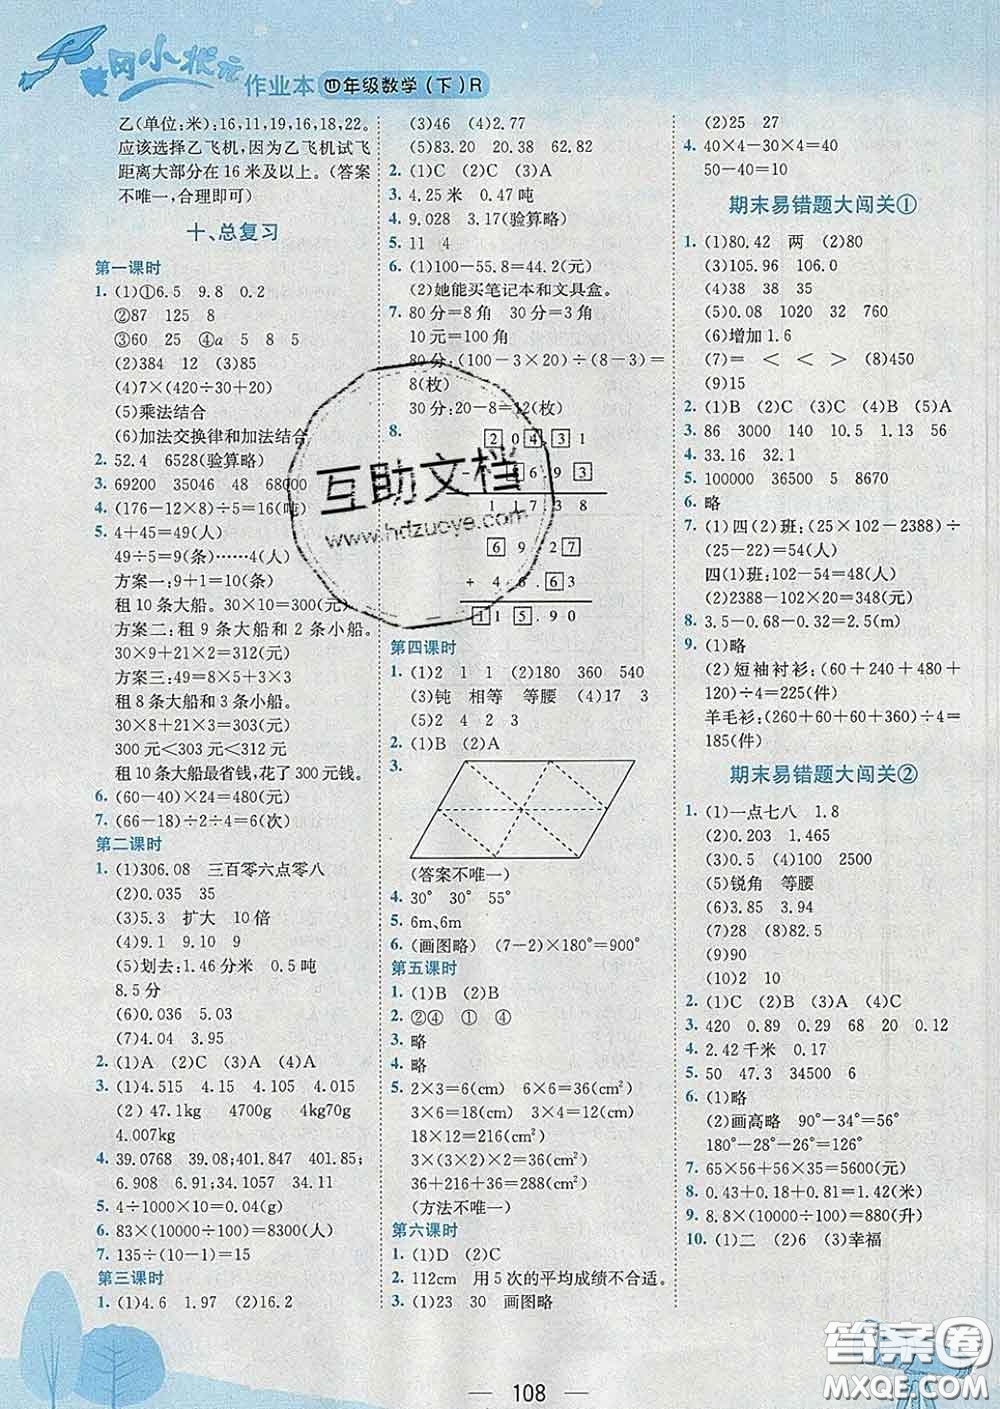 黄冈小状元
作业本 四年级数学(下)R
乙(单位:米):16,11,19,16,18,22。
应该选择乙飞机,因为乙飞机试飞
距离大部分在 16 米及以上。(答案
不唯一,合理即可)
十、总复习
第一课时
1. (1)①6.5 9.8 0.2
②87 125 8
③60 25 ④a 5 8 5
(2)384 12 (3)85
(4)7×(420÷30+20)
(5)乘法结合
(6)加法交换律和加法结合
2. 52.4 6528(验算略)
3. 69200 35046 48 68000
4. (176-12×8)÷5=16(吨)
5. 4+45=49(人)
49÷5=9(条)……4(人)
方案一:9+1=10(条)
租 10 条大船。30×10=300(元)
方案二:租 9 条大船和 2 条小船。
30×9+21×2=312(元)
方案三:49=8×5+3×3
租 8 条大船和 3 条小船。
30×8+21×3=303(元)
300 元<303 元<312 元
租 10 条大船最省钱,花了 300 元钱。
6. (60-40)×24=480(元)
7. (66-18)÷2÷4=6(次)
第二课时
1. (1)306.08 三百零六点零八
(2)0.035 35
(3)5.3 扩大 10倍
(4)9.9 9.10 9
(5)划去:1.46 分米 0.5 吨
8.5 分
(6)0.036 5.03
(7)4.04 3.95
2. (1)A (2)C (3)A (4)A
3. (1)4.515 4.15 4.105 4.015
(2) 47.1kg 4700g 4kg70g
4.007kg
4. 39.0768 39.08;401.847 401.85;
6.908 6.91;24.0359 24.04
5. 4÷1000×10=0.04(g)
6. 83×(10000÷100)=8300(人)
7. 135÷(10-1)=15
第三课时
1. (1)4.6 1.97 (2)16.2
(3)46 (4)2.77
(5)83.20 20.38 62.82
2. (1)B (2)A (3)C
3. 4.25 米 0.47 吨
4. 9.028 3.17(验算略)
5. 11 4
6. (1)100-55.8=44.2(元)
(2)她能买笔记本和文具盒。
7. 80 分=8 角 30 分=3 角
10 元=100 角
80 分:(100-3×20)÷(8-3)=
8(枚)
30 分:20-8=12(枚)
8.
2 0 4.3 1
6.9 3
1 1 7.3 8
6 9.2 7
+ 4 6.6 3
1 1 5.9 0
第四课时
1. (1)2 1 1 (2)180 360 540
(3)钝 相等 等腰 (4)17 3
(5)2 4 2 3
2. (1)B (2)A
3.
(答案不唯一)
4. 30° 30° 55°
5. 6m、6m
6. (画图略) (7-2)×180°=900°
第五课时
1. (1)B (2)B
2. ②④ ① ④
3. 略
4. 略
5. 2×3=6(cm) 6×6=36(cm²)
3×6=18(cm) 3×4=12(cm)
18×12=216(cm²)
3×(3×2)×2=36(cm)
36+216+36=216(cm²)
(方法不唯一)
第六课时
1. (1)D (2)C
2. 112cm 用 5 次的平均成绩不合适。
3. (1)23 30 画图略
(2)25 27
4. 40×4-30×4=40
50-40=10
期末易错题大闯关①
1. (1)80.42 两 (2)80
(3)105.96 106.0
(4)38 38 35
(5)0.08 1020 32 760
(6)增加 1.6
(7)= < < > (8)450
(9)15
2. (1)B (2)C (3)B (4)B (5)A
3. 86 3000 140 150 5 8.8
4. 33.16 32.1
5. 100000 35826 5 8670
6. 略
7. (1)四(2)班:(25×102-2388)÷
(25-22)=54(人)
四(1)班:102-54=48(人)
(2)2388-102×22=144(元)
8. 3.5-0.68-0.32=2.5(m)
9. (1)略
(2)短袖衬衫:(60+240+480+
120)÷4=225(件)
羊毛衫:(260+60+60+360)÷4=
185(件)
期末易错题大闯关②
1. (1)一点七八 1.8
(2)0.203 1.465
(3)0.5 (4)100 2500
(5)锐角 等腰
(6)3.85 3.94
(7)28 (8)82.5
(9)90
(10)2 10
2. (1)C (2)B (3)A (4)C
3. 420 0.89 0.29 68 20 0.12
4. 2.42千米 0.17
5. 50 47.3 34500 6
6. (1)略
(2)画高略 90°-34°=56°
180°-28°-26°=126°
7. 65×56+56×35=5600(元)
8. 0.43+0.18+0.81=1.42(米)
9. 8.8×(10000÷100)=880(升)
10. (1)二 (2)6 (3)幸福
互助文档
www.hdzuoye.com
108
答案圈
MXQE.COM